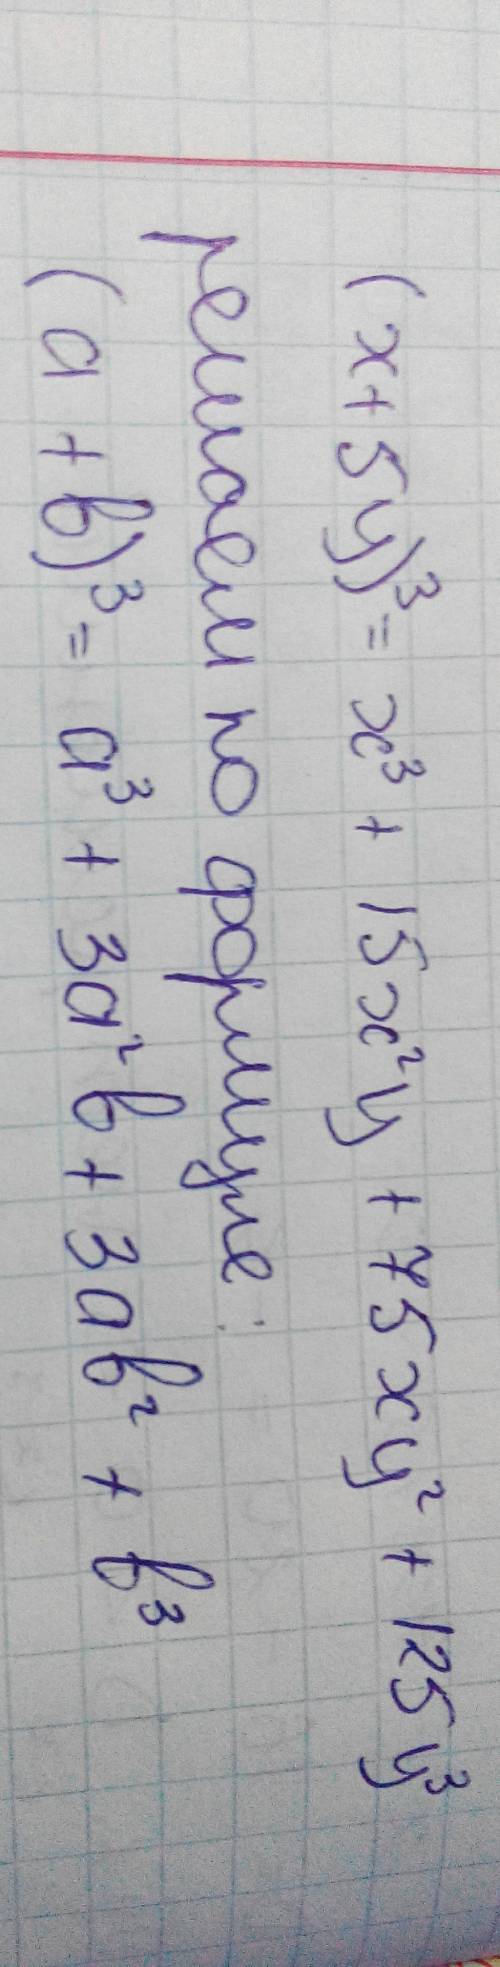 (x+5y)³= x³+ 15x²y +75xy²+125y³
решаем по формуле:
(a+b)³= a³+3a²b+3ab²+b³